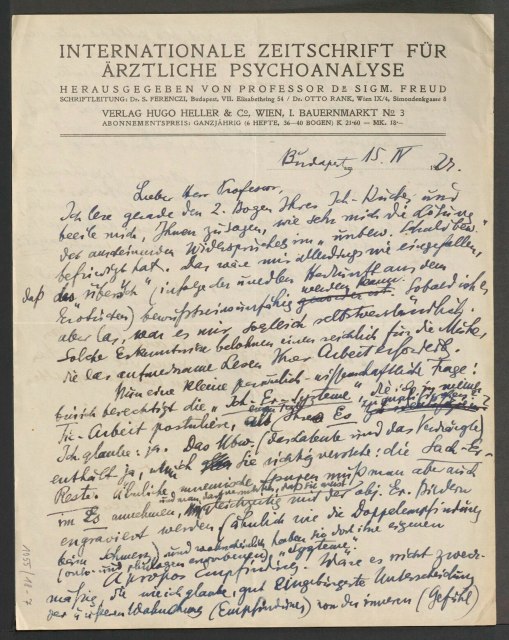 INTERNATIONALE ZEITSCHRIFT FÜR
ÄRZTLICHE PSYCHOANALYSE
HERAUSGEGEBEN VON PROFESSOR DR SIGM. FREUD
SCHRIFTLEITUNG: Dr. S. FERENCZI, Budapest, VII. Elisabethring 54 / Dr. OTTO RANK, Wien IX/4, Simondenkgasse 8
VERLAG HUGO HELLER & Co, WIEN, I. BAUERNMARKT No 3
ABONNEMENTSPREIS: GANZJÄHRIG (6 HEFTE, 36—40 BOGEN) K 21·60 = MK. 18·—
Budapest, 15. IV 1923.
Lieber Herr Professor,
Ich lese gerade den 2. Bogen Ihres Ich-Buches und
beeile mich, Ihnen zu sagen, wie sehr mich die Lösung
des anscheinenden Widerspruches im „unbew. Schuldbew."
befriedigt hat. Das wäre mir allerdings nie eingefallen,
daß das „Überich" (infolge der Herkunft aus dem
Erotischen) bewußtseinsunfähig werden kann. Sobald ich es
aber las, war es mir sogleich selbstverständlich.
Solche Erkenntnisse belohnen einen reichlich für die Mühe,
die das aufmerksame Lesen Ihrer Arbeit erfordert.
Nun eine kleine persönlich-wissenschaftliche Frage:
bin ich berechtigt die „Ich-Er-Systeme", die ich in meiner
Tic-Arbeit postulire, Ihrem Es
Ich glaube: ja. Das Ubw. (das Latente und das Verdrängte)
enthält ja, wenn ich Sie richtig verstehe: die Sach-Er-
Reste. Ähnliche mnemische Spuren muß man aber auch
im Es annehmen, die gleichzeitig mit den obj. Er. Bildern
engravirt werden (ähnlich wie die Doppelempfindung
beim Schmerz) und wahrscheinlich haben sie dort ihre eigenen
(onto- und phylogen. „Systeme".
Apropos Empfindung. Wäre es nicht zweck-
mäßig die, wie ich glaube, gut eingebürgerte Unterscheidung
der äußern Wahrnehmung (Empfindung) von der inneren (Gefühl)